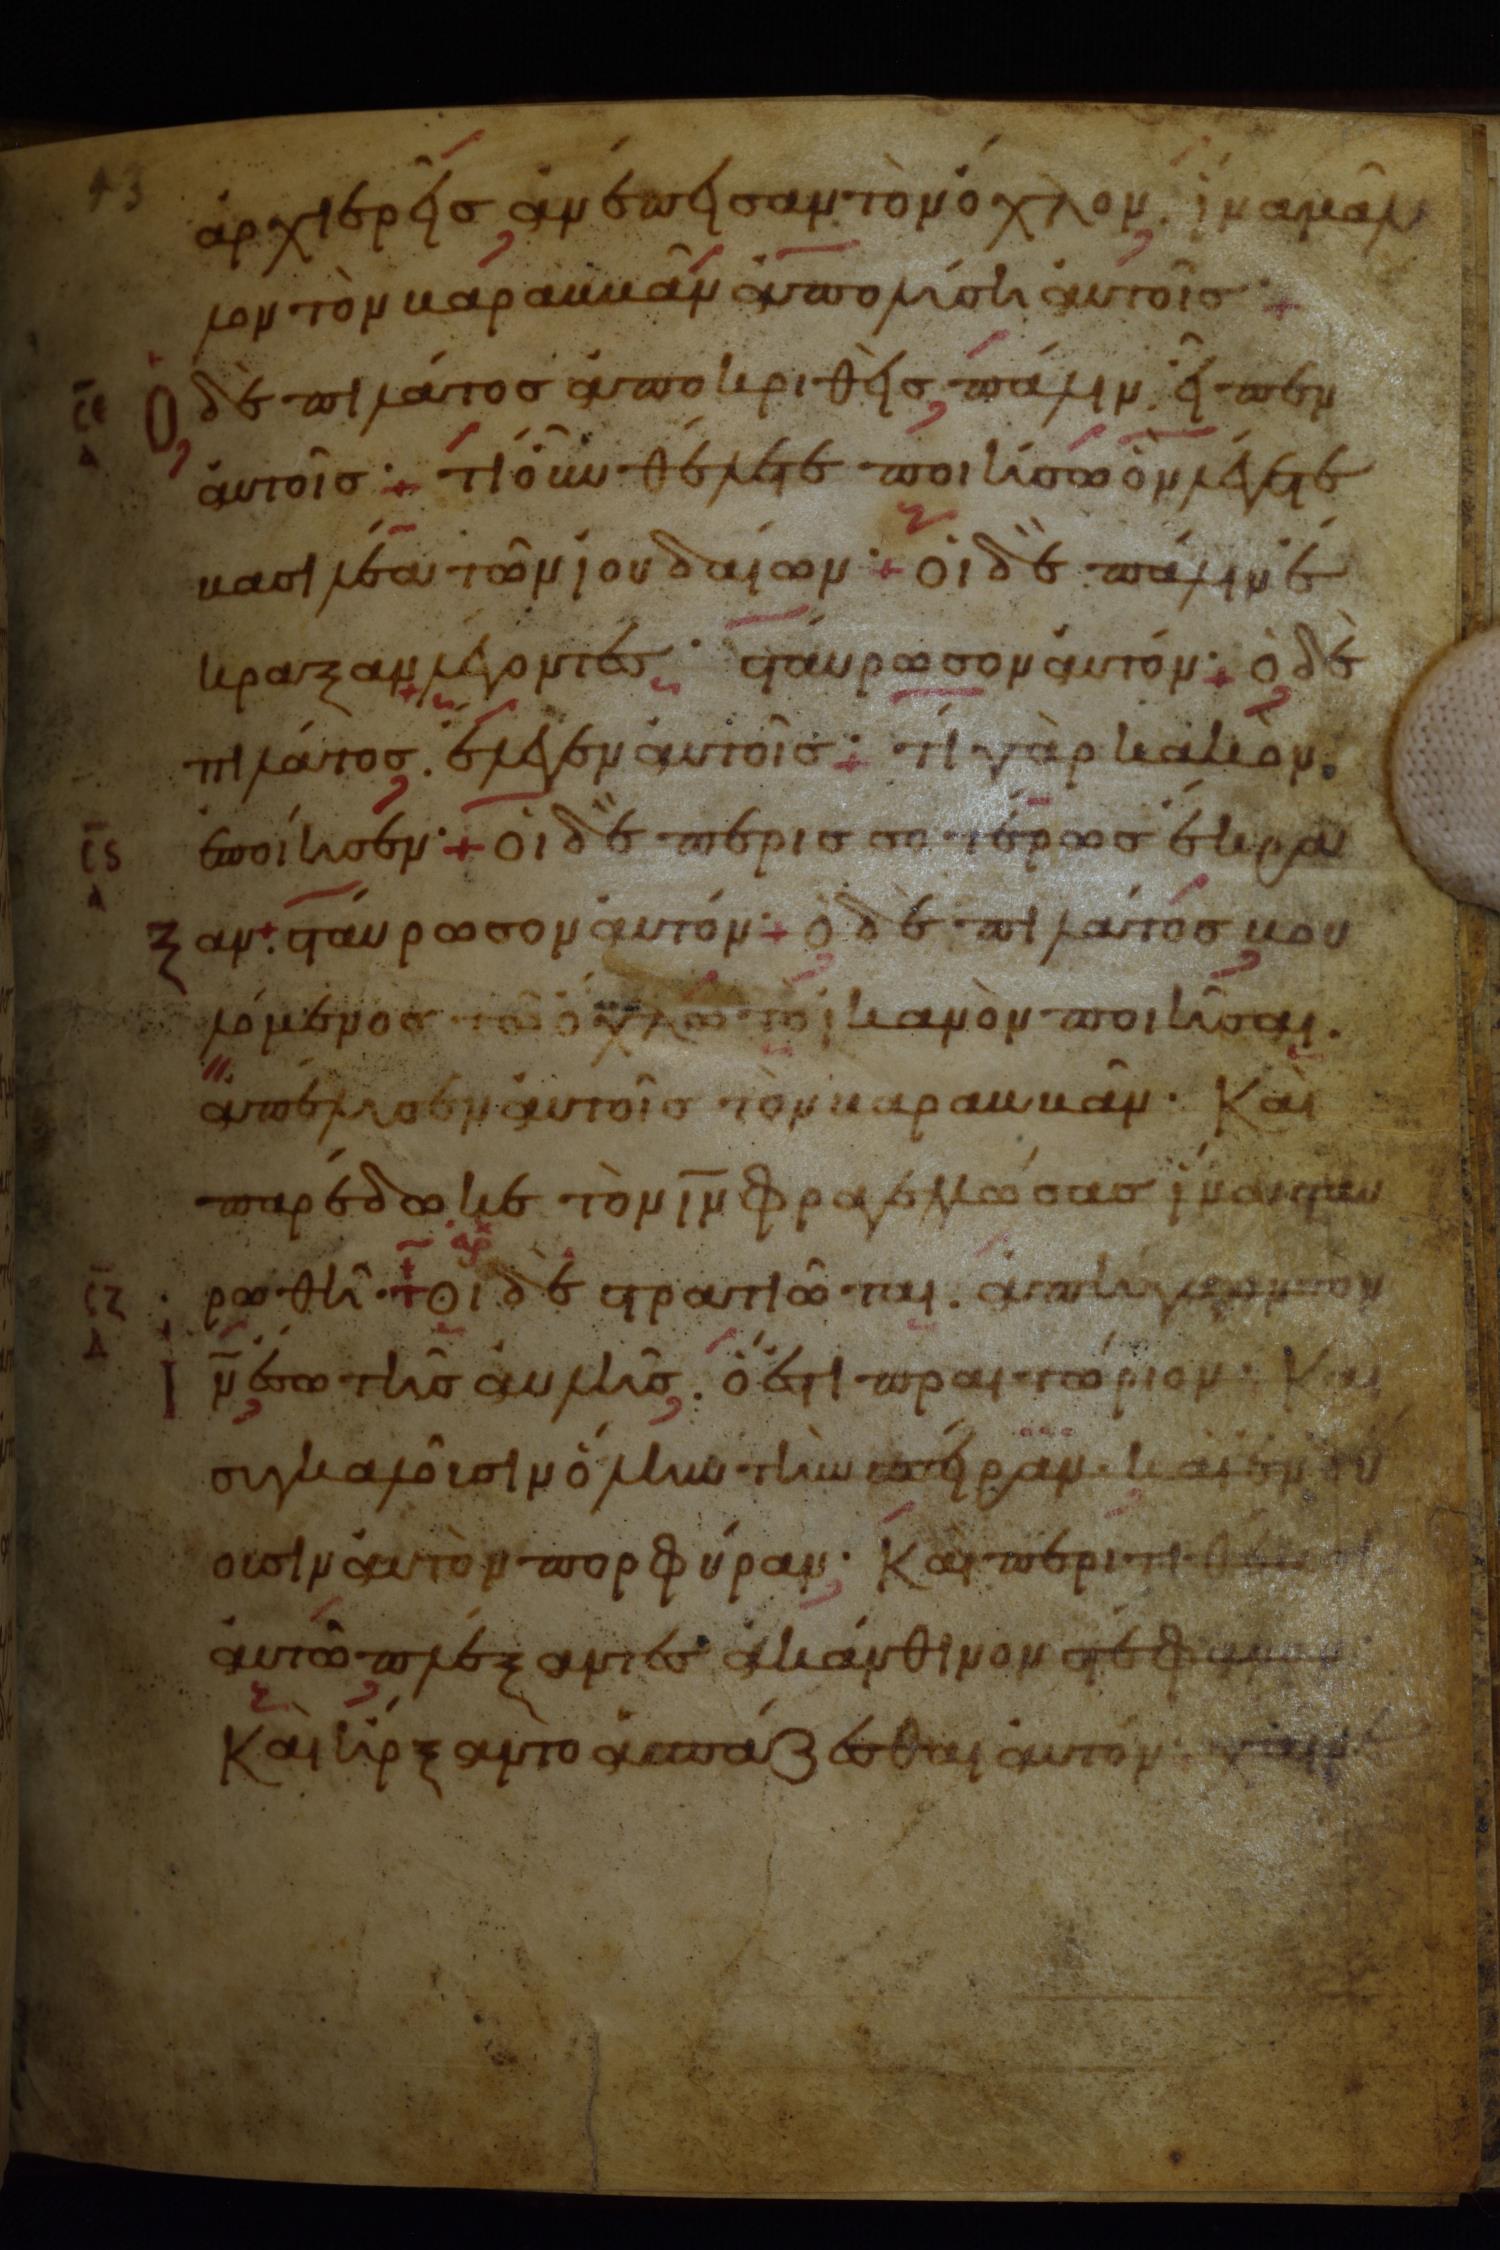 43
ἀρχιερῆς ἀνέπησαν τὸν ὄχλον. ἵνα μᾶλ
λον τὸν βαραββᾶν ἀπολύσῃ ἀυτοῖς· +
σε Δ Ὁ δὲ πιλάτος ἀποκριθῆς πάλιν. ἦπεν
ἀυτοῖς· + τί ὀῦν θέλετε ποιήσω ὃν λέγετε
βασιλέα τῶν ἰουδαίων· + ὁι δὲ πάλιν ἔ
κραξαν λέγοντες· σταύρωσον ἀυτόν· + ὁ δὲ
πιλάτος. ἔλεγεν ἀυτοῖς· + τί γὰρ κακὸν.
σς Δ ἐποίησεν· + ὁι δὲ περισσοτέρως ἔκρα
ξαν· + σταύρωσον ἀυτόν· + ὁ δὲ πιλάτος βου
λόμενος τῶ ὄχλω τὸ ἱκανὸν ποιῆσαι.
ἀπέλυσεν ἀυτοῖς τὸν βαραββᾶν· Καὶ
παρέδωκε τὸν ιν φραγελλώσας ἵνα σταυ
σζ Δ ρωθῆ· + ἀρχ ὁι δὲ στρατιῶται. ἀπήγαγον τον
ιν ἔσω τῆς ἀυλῆς. ὅ ἐστι πραιτώριον· Και
συγκαλοῦσιν ὅλην τὴν σπῆραν· καὶ ἐνδύ
ουσιν ἀυτὸν πορφύραν· Καὶ περιτιθέασιν
ἀυτῶ πλέξαντες ἀκάνθινον στέφανον·
Καὶ ἤρξαντο ἀσπάζεσθαι ἀυτόν·